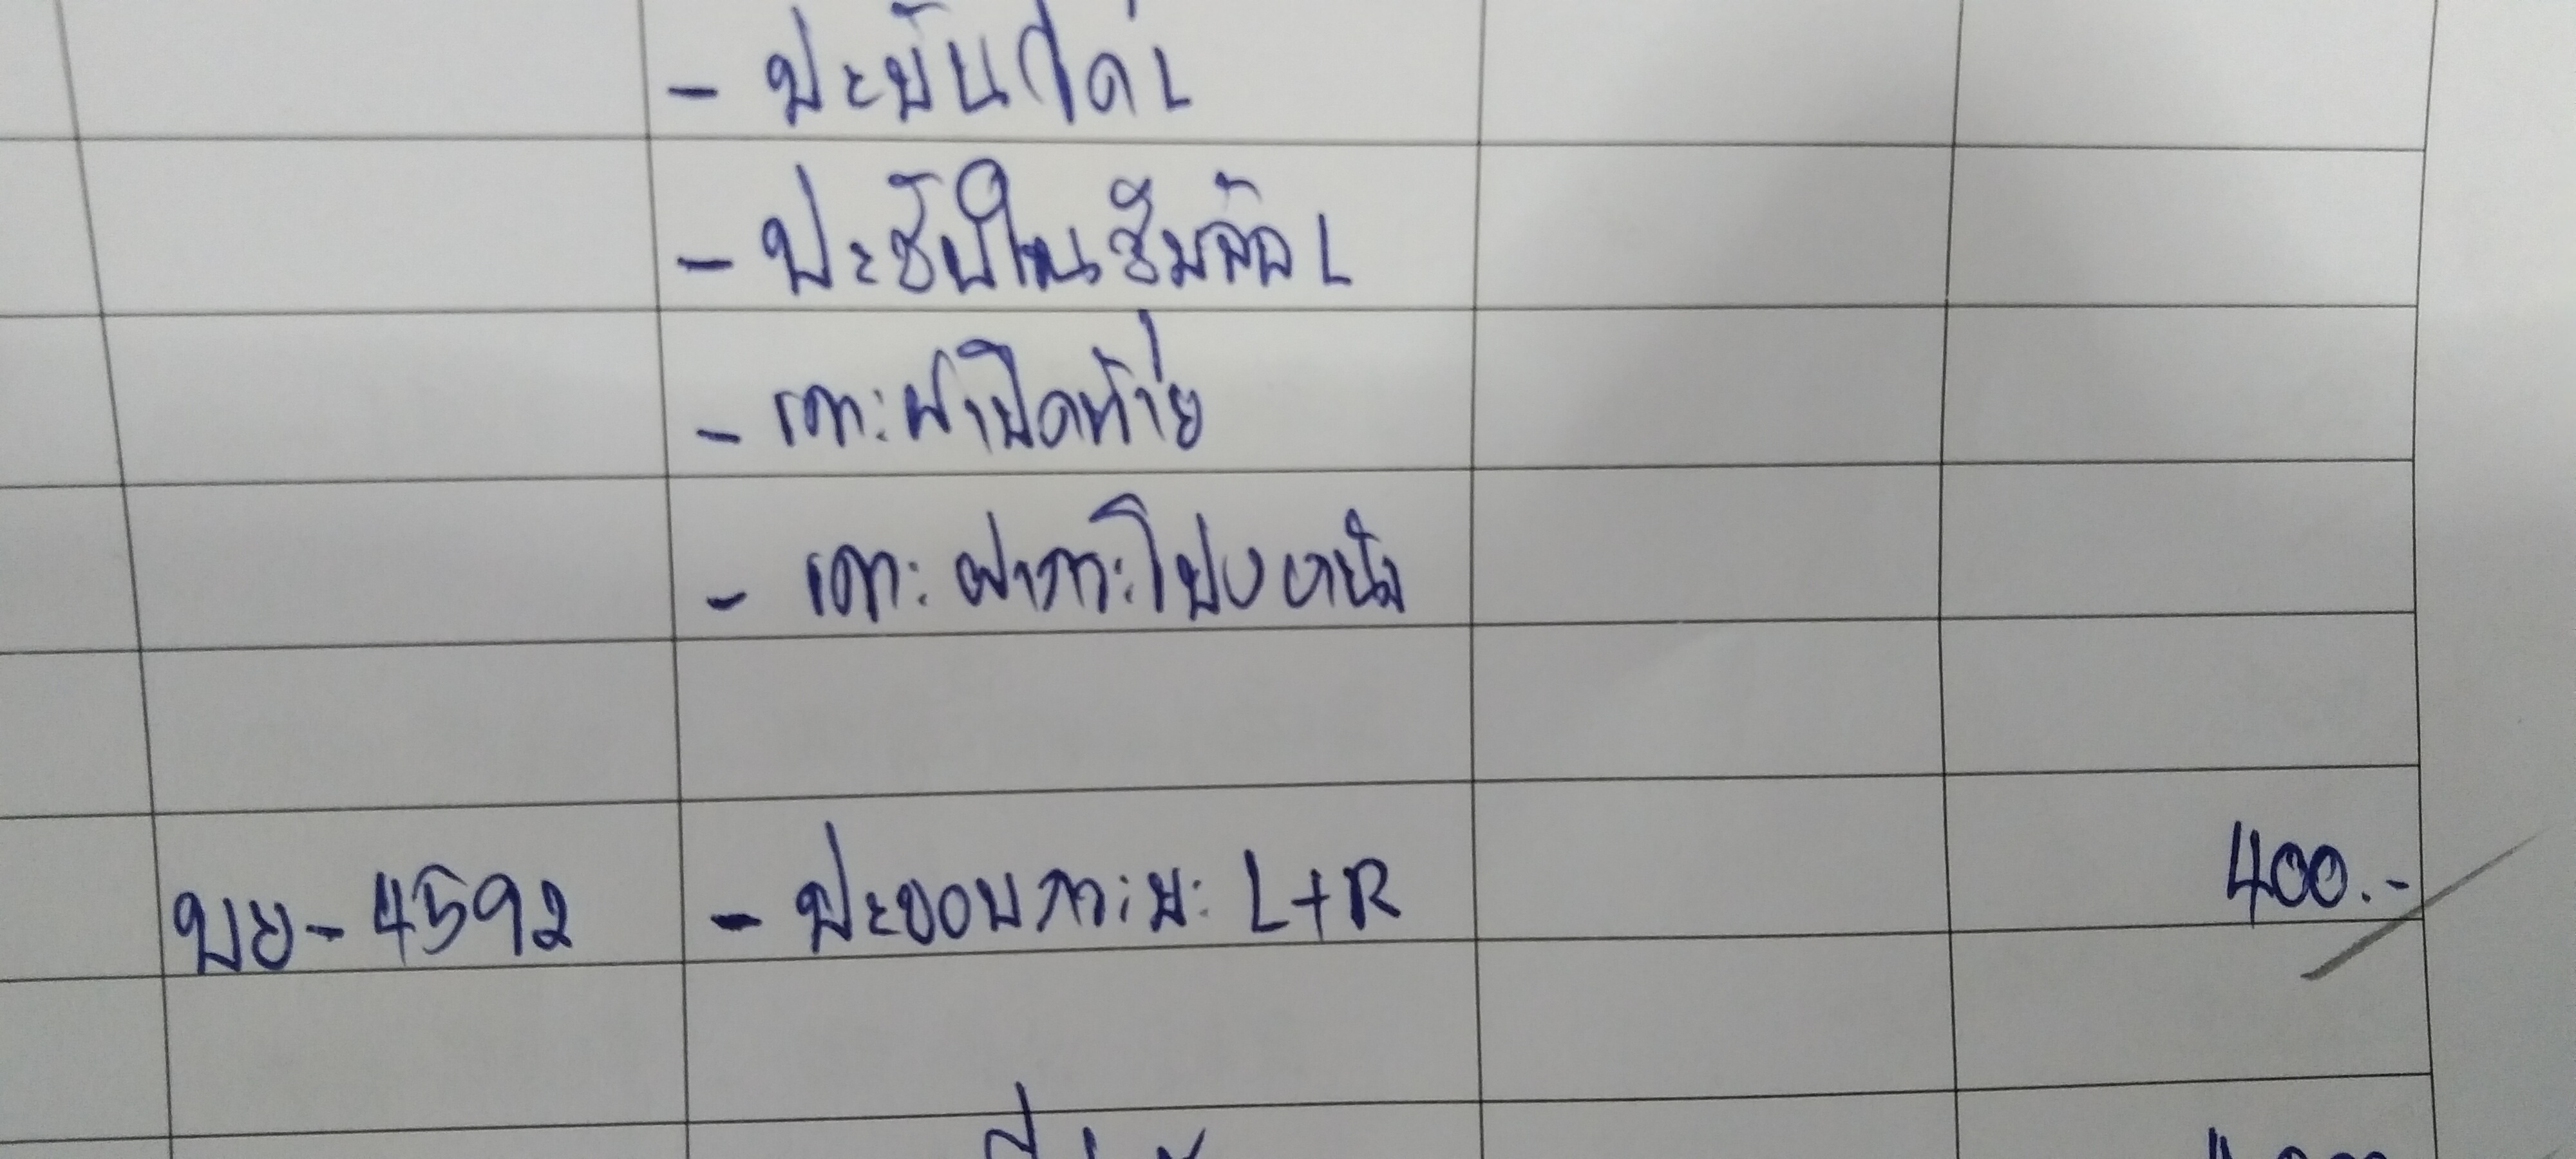 - ปะบันได L
- ปะซับในซุ้มล้อ L
- เคาะฝาปิดท้าย
- เคาะฝากระโปรงหน้า
บย-4592 - ปะขอบกระบะ L+R 400.-